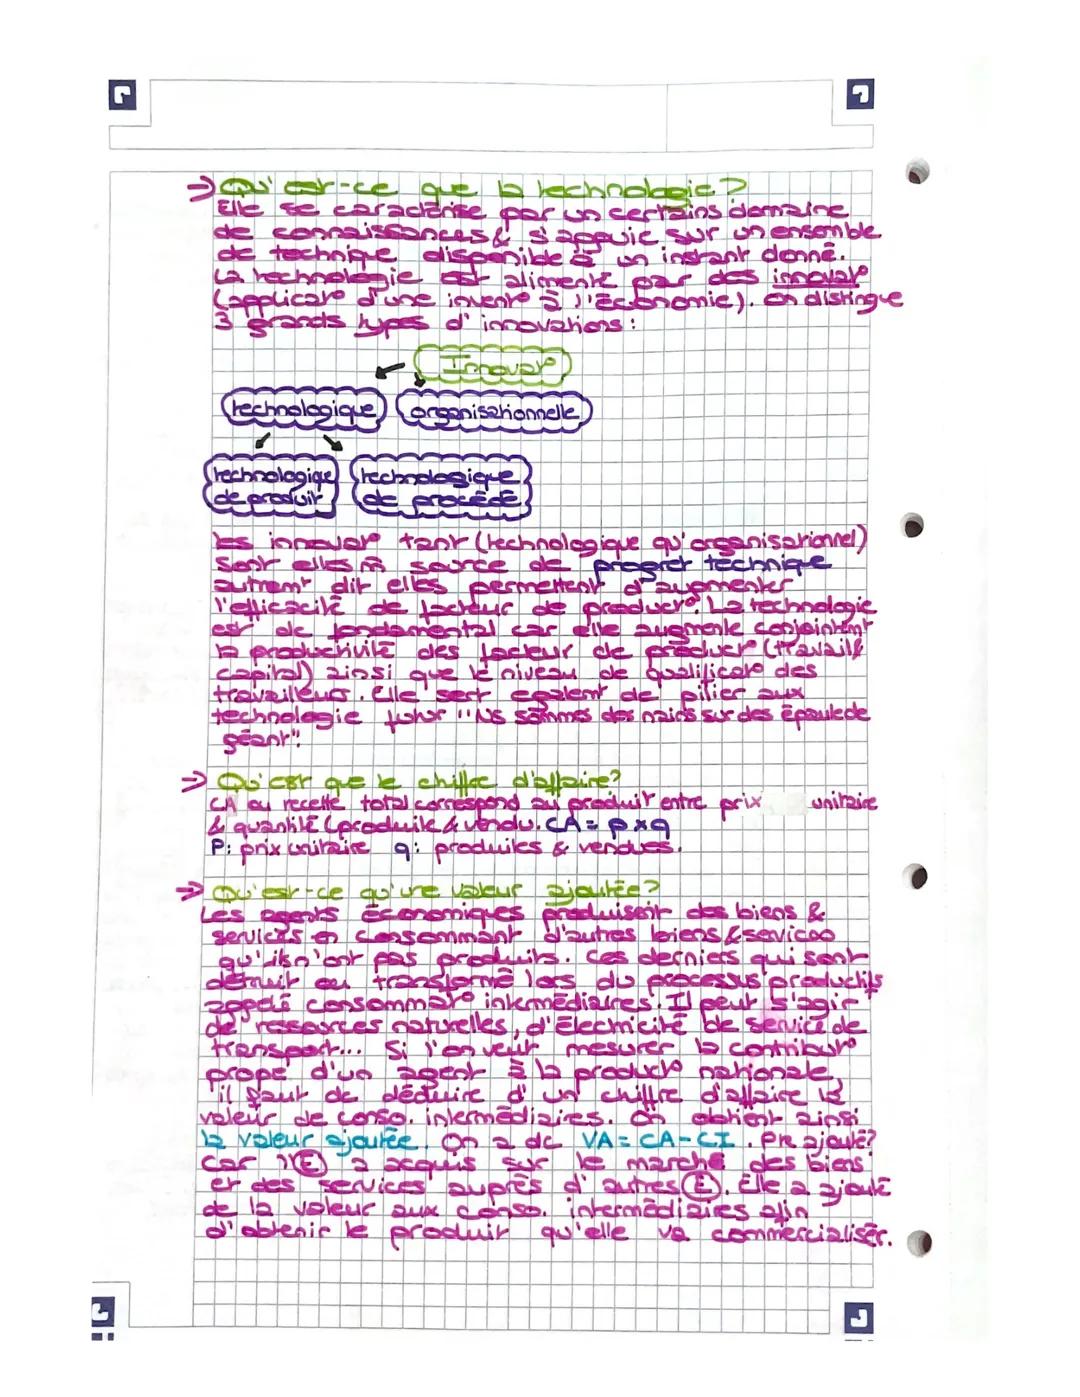 ⇒ Qu'est-ce que la technologie?
Elle se caractérise par un certains domaine
de connaissances & s'appuie sur un ensemble
de technique disponible à un instant donné.
La technologie est alimenté par des innovat°
(applicat° d'une invent° à l'économie). On distingue
3 grands types d'innovations:
Innovat°
technologique organisationnelle
technologique de produit
technologique de procédé
les innovat° tant (technologique qu'organisationnel)
sont elles m̂ source de progret technique
autremt dit elles permettent d'augmenter
l'efficacité de facteur de product°. La technologie
est dc fondamental car elle augmente conjointemt
la productivité des facteur de product° (travail &
capital) ainsi que le niveau de qualificat° des
travailleurs. Elle sert egalemt de pilier aux
technologie futur "Ns sommes des nains sur des épaule de
géant".
⇒ Qu'est que le chiffre d'affaire?
CA ou recette total correspond au produit entre prix unitaire
& quantité (produite & vendu. CA = p x q
P: prix unitaire q: produites & vendues.
⇒ Qu'est-ce qu'une valeur ajoutée?
Les agents économiques produisent des biens &
services en consommant d'autres biens & services
qu'ils n'ont pas produits. Ces derniers qui sont
détruit ou transformé lors du processus productifs
appelé consommat° intermédiaires. Il peut s'agir
de ressources naturelles, d'électricité de service de
transport... Si l'on veut mesurer la contribut°
propre d'un agent à la product° nationale,
il faut dc déduire d'un chiffre d'affaire la
valeur de conso. intermédiaires. On obtient ainsi
la valeur ajoutée. On a dc VA = CA - CI. Prk ajouté?
car l'Ⓔ a acquis sur le marché des biens
et des services auprès d'autres Ⓔ. Elle a ajouté
de la valeur aux conso. intermédiaires afin
d'obtenir le produit qu'elle va commercialiser.